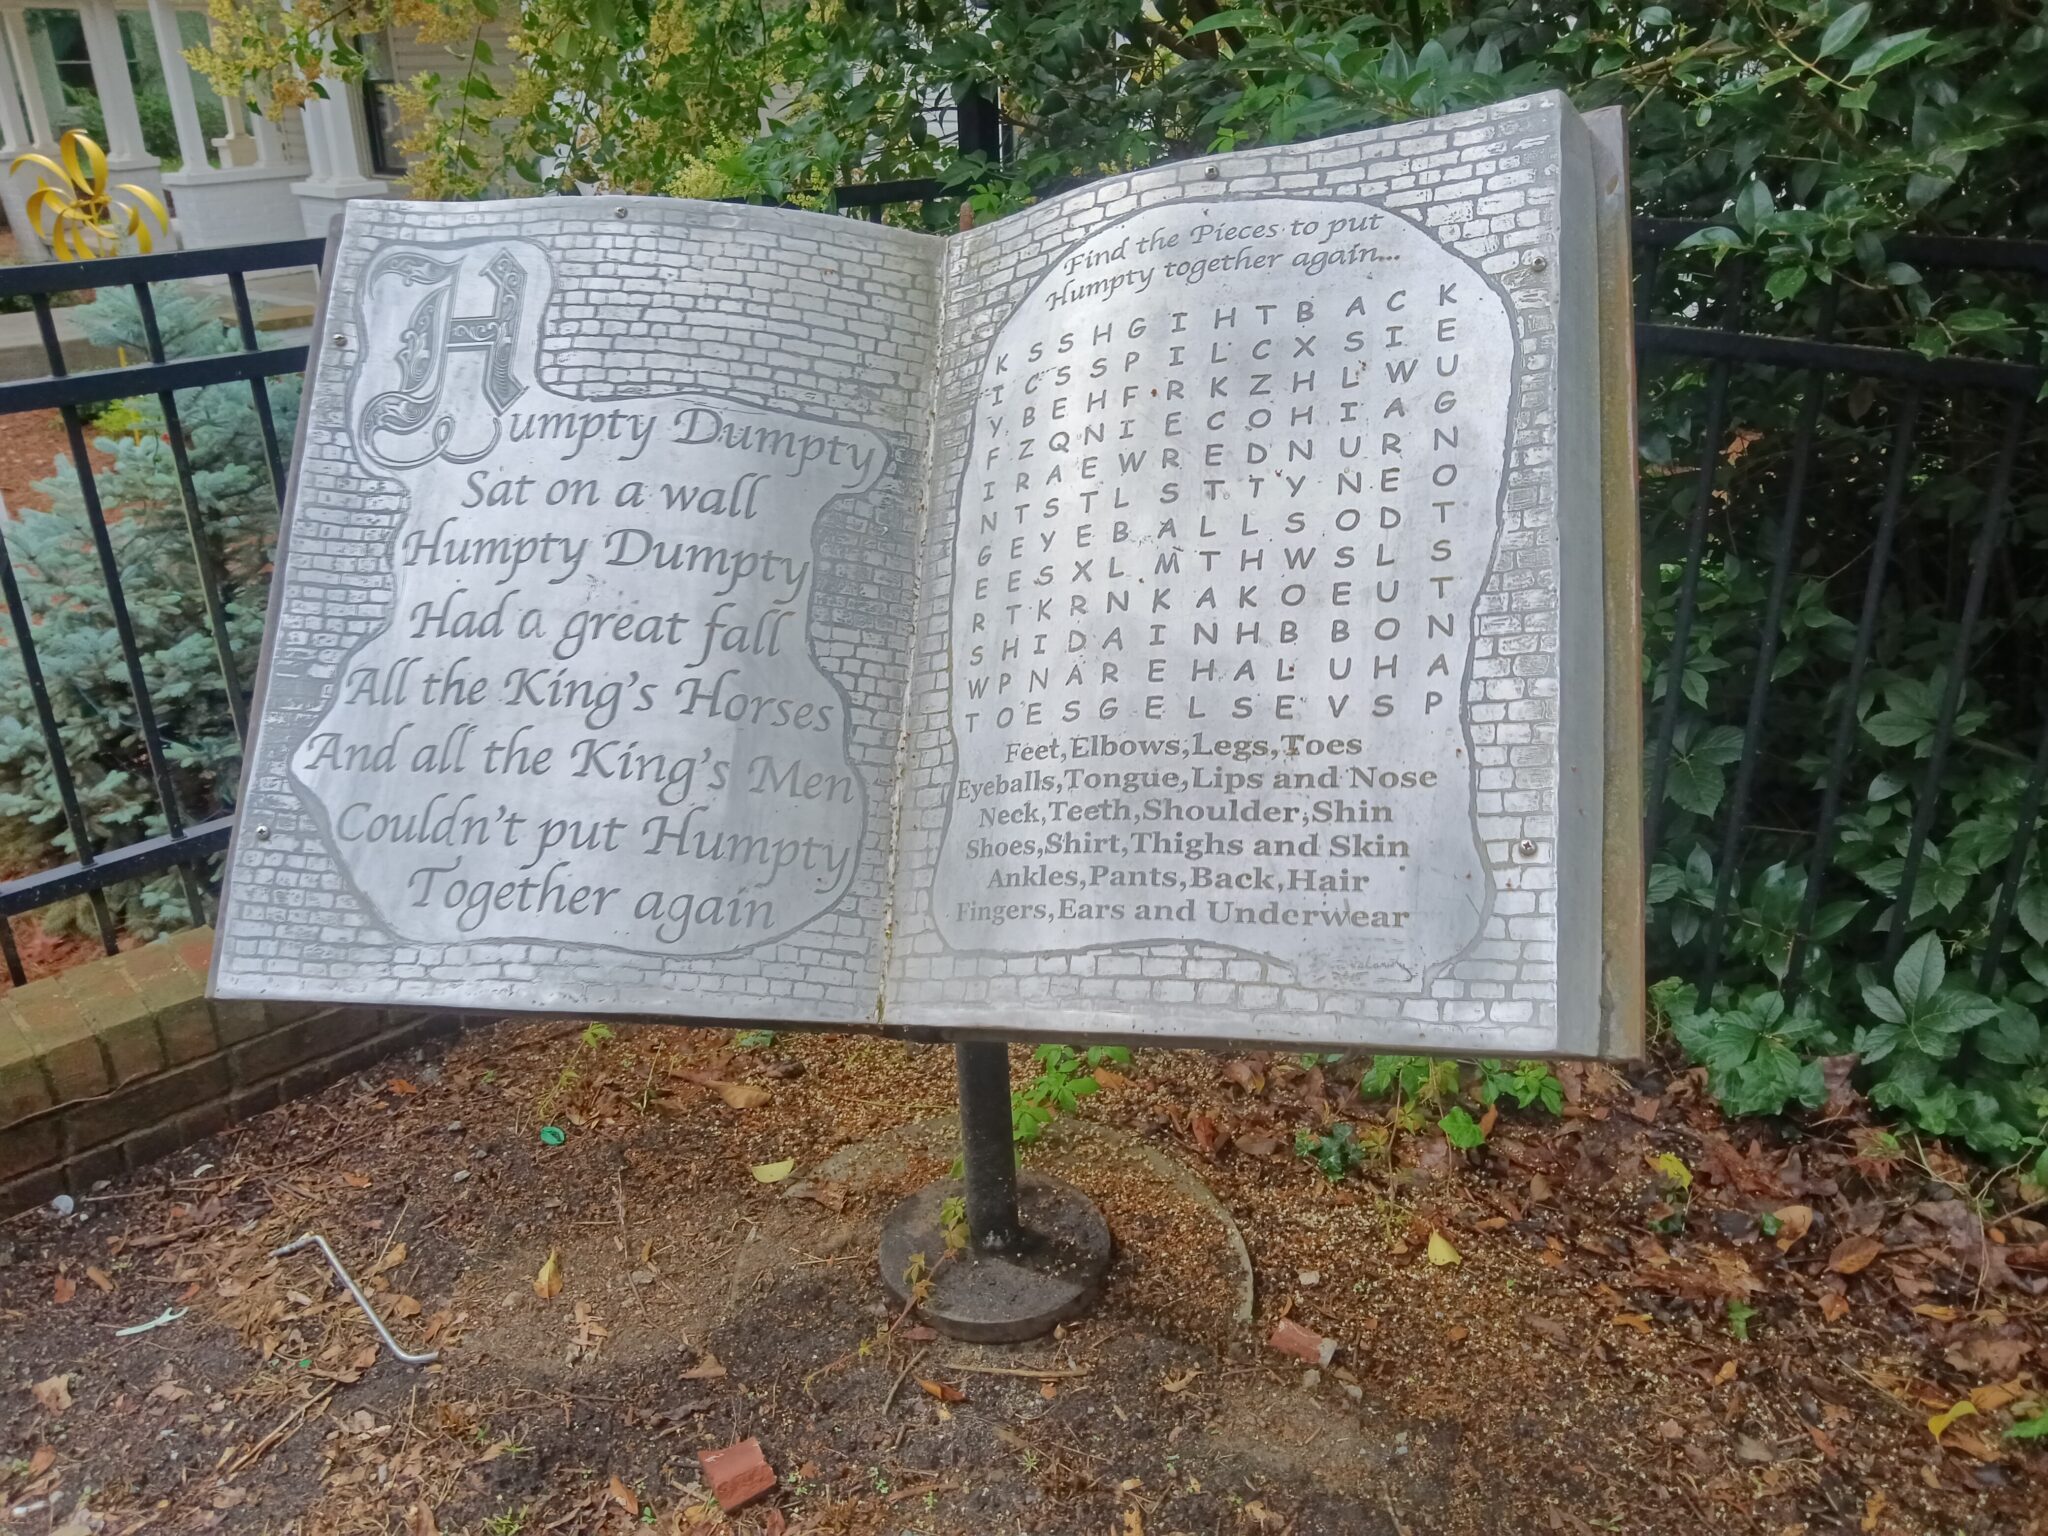 Humpty Dumpty
Sat on a wall
Humpty Dumpty
Had a great fall
All the King's Horses
And all the King's Men
Couldn't put Humpty
Together again
Find the Pieces to put
Humpty together again...
K S S H G I H T B A C K
I C S S P I L C X S I E
Y B E H F R K Z H L W U
F Z Q N I E C O H I A G
I R A E W R E D N U R N
N T S T L S T T Y N E O
G E Y E B A L L S O D T
E E S X L M T H W S L S
R T K R N K A K O E U T
S H I D A I N H B B O N
W P N A R E H A L U H A
T O E S G E L S E V S P
Feet,Elbows,Legs,Toes
Eyeballs,Tongue,Lips and Nose
Neck,Teeth,Shoulder,Shin
Shoes,Shirt,Thighs and Skin
Ankles,Pants,Back,Hair
Fingers,Ears and Underwear